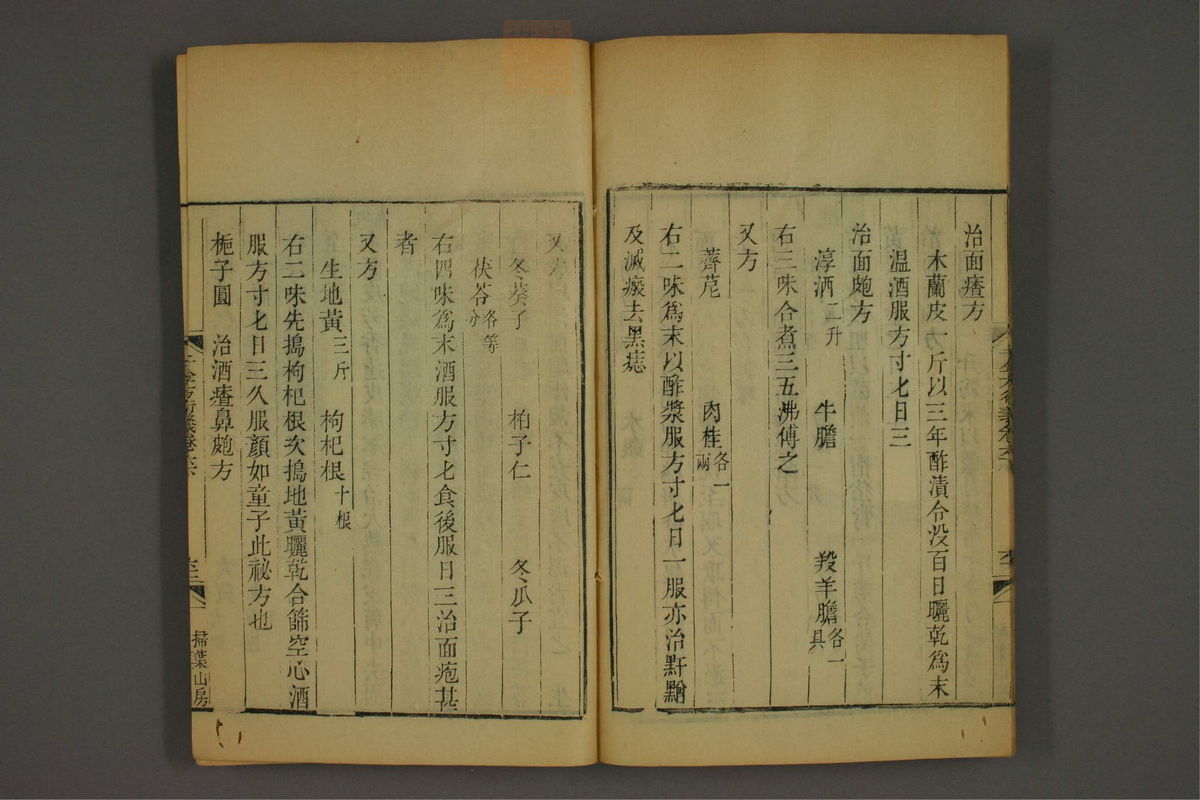 治面㾴方
木蘭皮一斤以三年酢漬令没百日曬乾爲末
温酒服方寸匕日三
治面皰方
淳酒二升 牛膽 羖羊膽各一具
右三味合煮三五沸傅之
又方
薺苨 肉桂各一兩
右二味爲末以酢漿服方寸匕日一服亦治䵟䵳
及滅瘢去黑痣
又方
冬葵子 柏子仁 冬瓜子
茯苓各等分
右四味爲末酒服方寸匕食後服日三治面疱甚
者
又方
生地黄三斤 枸杞根十根
右二味先搗枸杞根次搗地黄曬乾合篩空心酒
服方寸匕日三久服顔如童子此祕方也
梔子圓 治酒㾴鼻皰方
千金方衍義卷六
掃葉山房